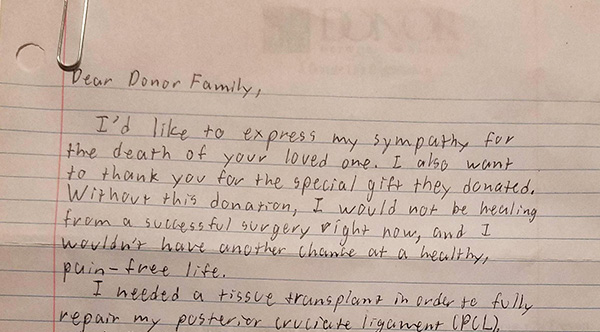 DONOR
Dear Donor Family,
I'd like to express my sympathy for
the death of your loved one. I also want
to thank you for the special gift they donated.
Without this donation, I would not be healing
from a successful surgery right now, and I
wouldn't have another chance at a healthy,
pain-free life.
I needed a tissue transplant in order to fully
repair my posterior cruciate ligament (PCL).